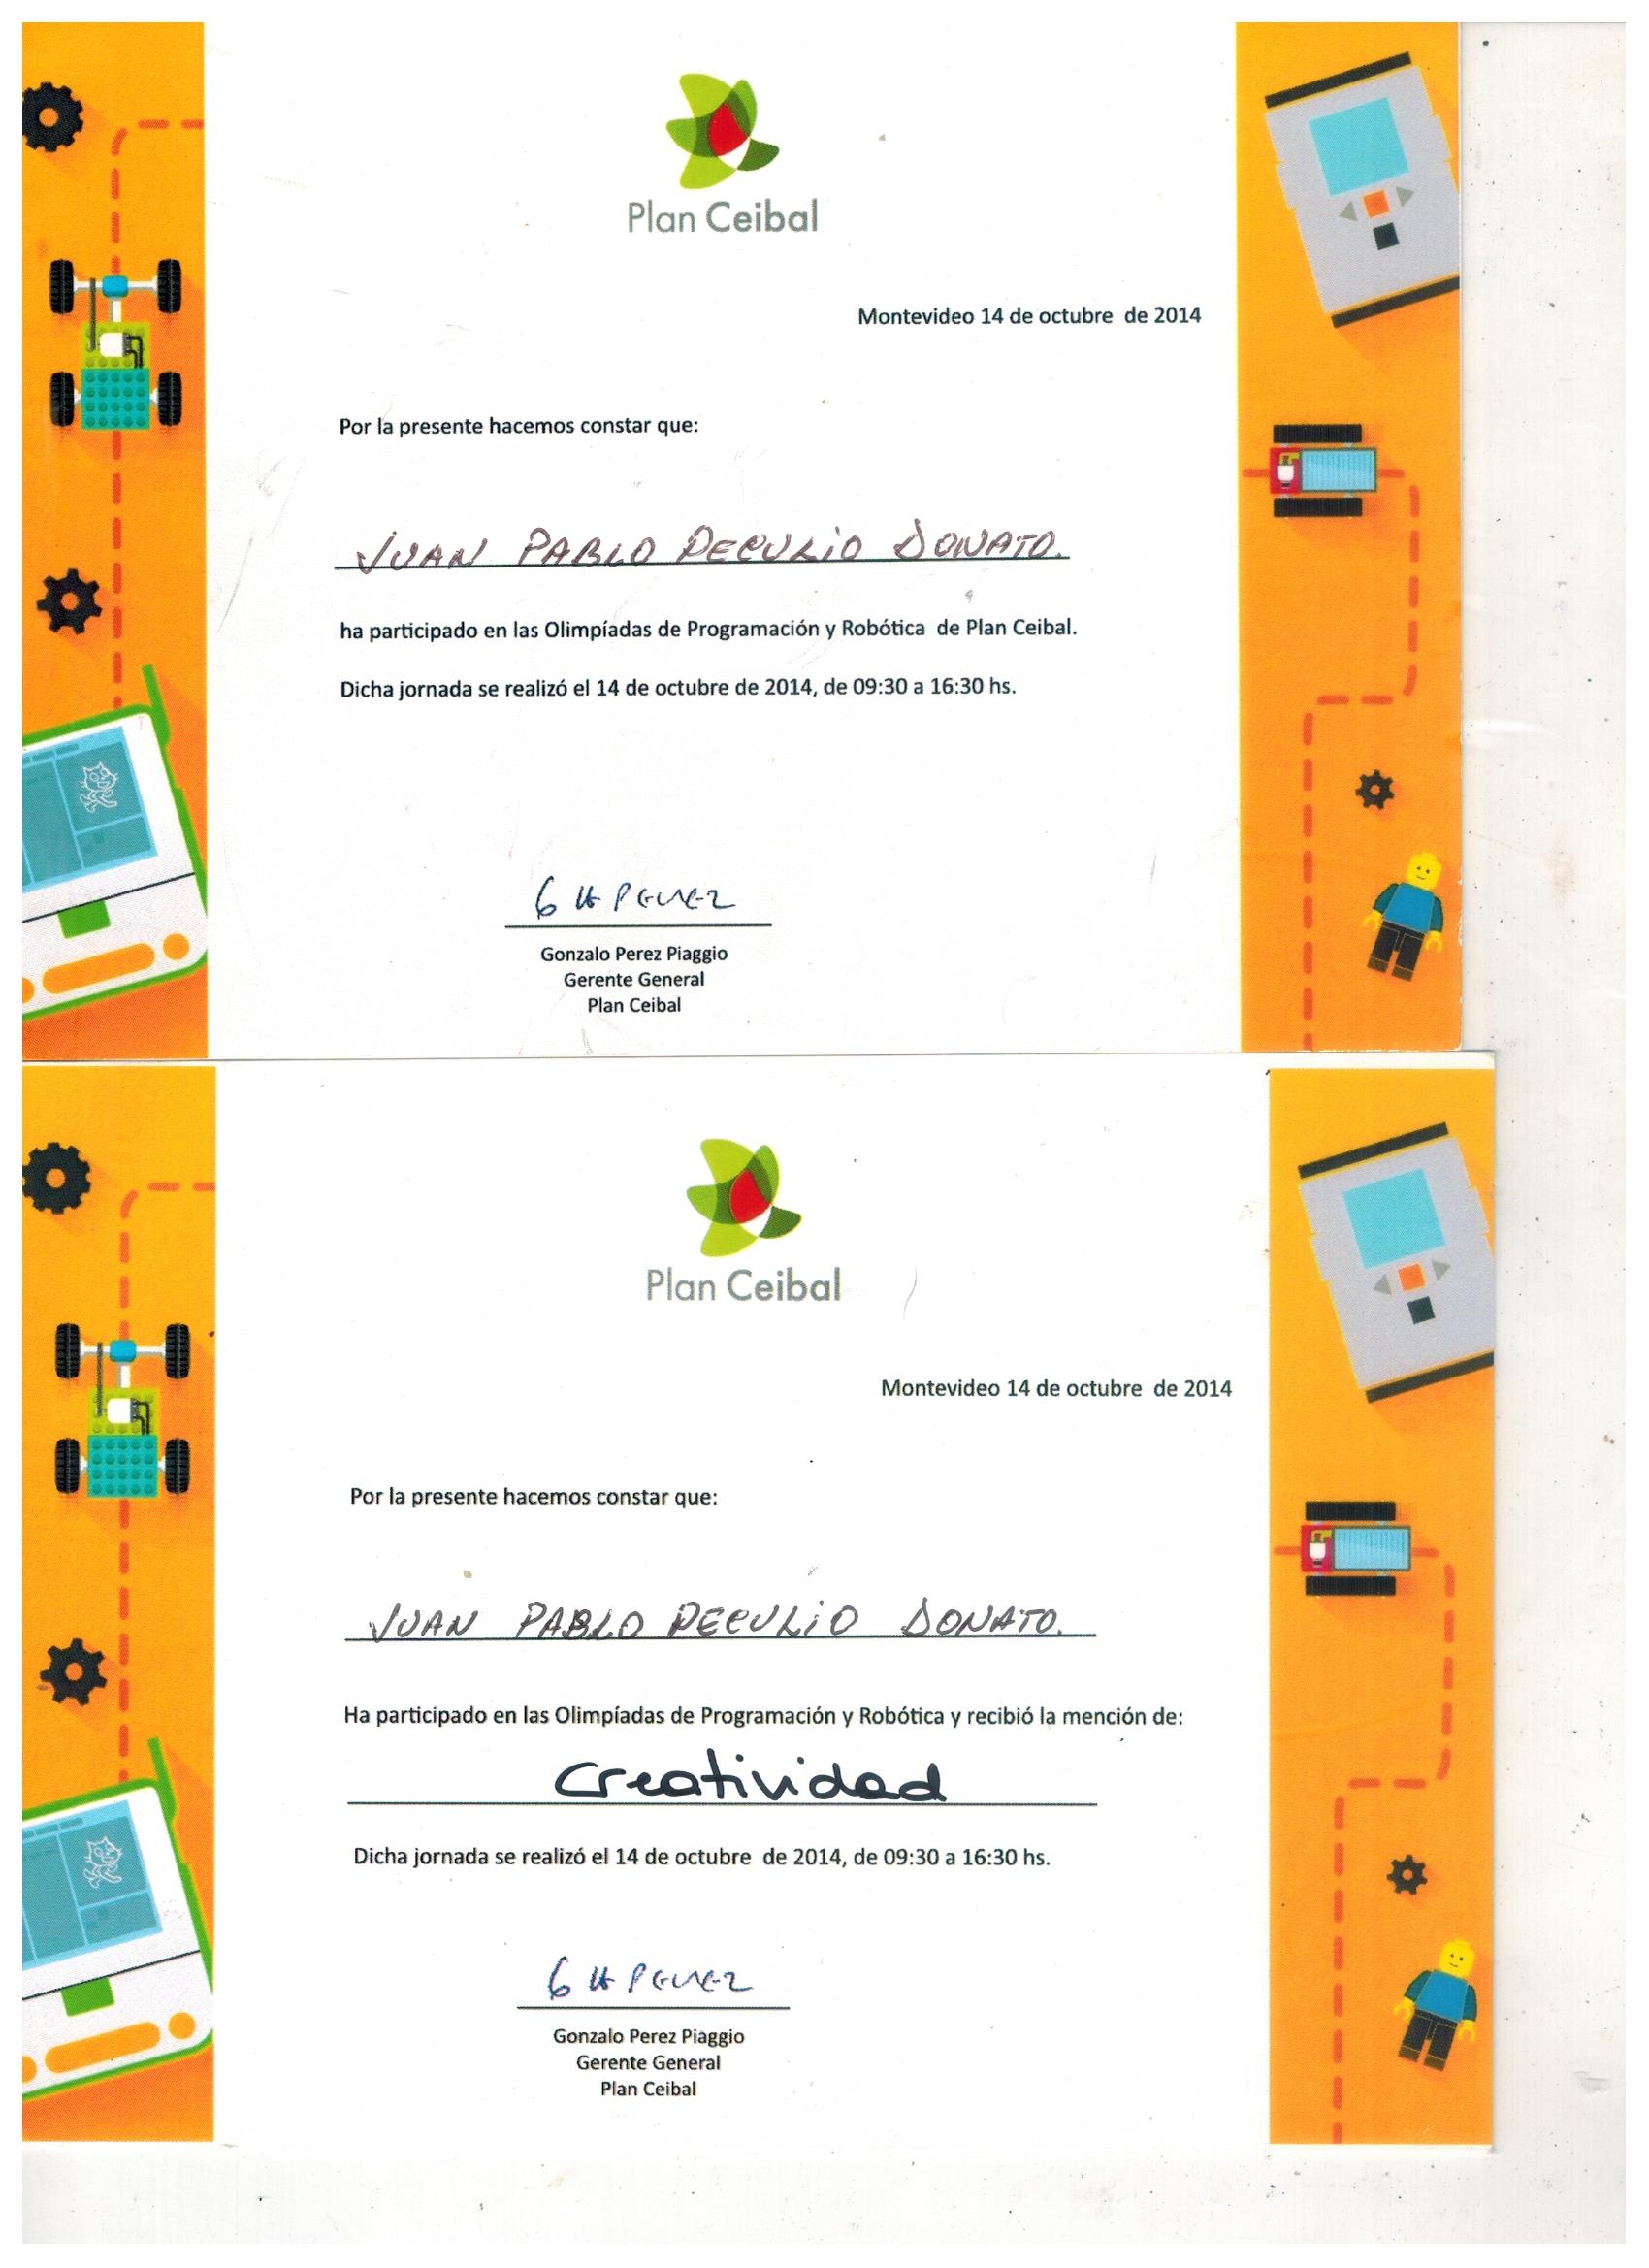 Plan Ceibal
Montevideo 14 de octubre de 2014
Por la presente hacemos constar que:
JUAN PABLO PECULIO DONATO.
ha participado en las Olimpíadas de Programación y Robótica de Plan Ceibal.
Dicha jornada se realizó el 14 de octubre de 2014, de 09:30 a 16:30 hs.
Gonzalo Perez Piaggio
Gerente General
Plan Ceibal
Plan Ceibal
Montevideo 14 de octubre de 2014
Por la presente hacemos constar que:
JUAN PABLO PECULIO DONATO.
Ha participado en las Olimpíadas de Programación y Robótica y recibió la mención de:
Creatividad
Dicha jornada se realizó el 14 de octubre de 2014, de 09:30 a 16:30 hs.
Gonzalo Perez Piaggio
Gerente General
Plan Ceibal